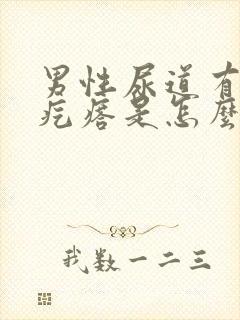 男性尿道有
疙瘩是怎麼
我数一二三